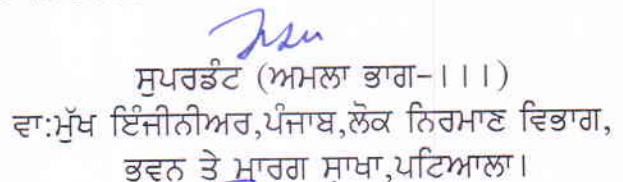 ਸੁਪਰਡੰਟ (ਅਮਲਾ ਭਾਗ-।।।)
ਵਾ:ਮੁੱਖ ਇੰਜੀਨੀਅਰ,ਪੰਜਾਬ,ਲੋਕ ਨਿਰਮਾਣ ਵਿਭਾਗ,
ਭਵਨ ਤੇ ਮਾਰਗ ਸਾਖਾ,ਪਟਿਆਲਾ।